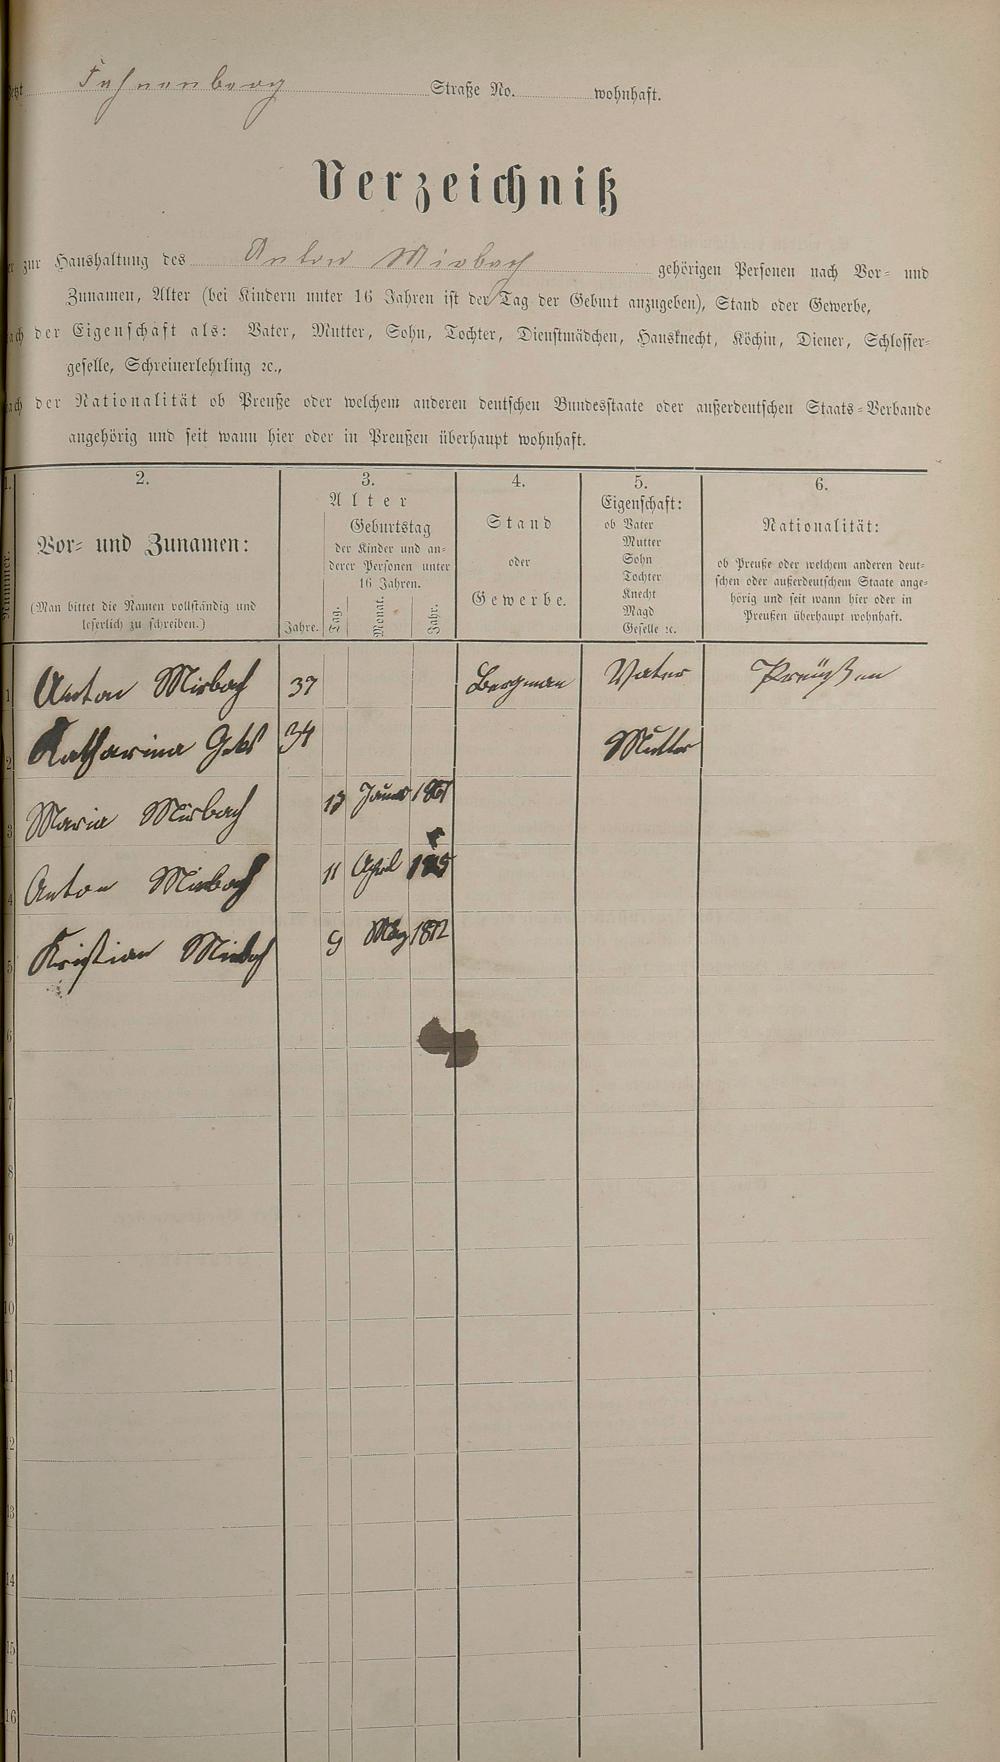 Fahrenberg Straße No. wohnhaft.
Verzeichniß
zur Haushaltung des Anton Mirbach gehörigen Personen nach Vor- und
Zunamen, Alter (bei Kindern unter 16 Jahren ist der Tag der Geburt anzugeben), Stand oder Gewerbe,
der Eigenschaft als: Vater, Mutter, Sohn, Tochter, Dienstmädchen, Hausknecht, Köchin, Diener, Schlosser-
geselle, Schreinerlehrling ꝛc.,
der Nationalität ob Preuße oder welchem anderen deutschen Bundesstaate oder außerdeutschen Staats-Verbande
angehörig und seit wann hier oder in Preußen überhaupt wohnhaft.
1. 2. 3. 4. 5. 6.
Nummer.
Vor- und Zunamen:
(Man bittet die Namen vollständig und
leserlich zu schreiben.)
Alter
Geburtstag
der Kinder und an-
derer Personen unter
16 Jahren.
Jahre. Tag. Monat. Jahr.
Stand
oder
Gewerbe.
Eigenschaft:
ob Vater
Mutter
Sohn
Tochter
Knecht
Magd
Geselle ꝛc.
Nationalität:
ob Preuße oder welchem anderen deut-
schen oder außerdeutschem Staate ange-
hörig und seit wann hier oder in
Preußen überhaupt wohnhaft.
1 Anton Mirbach 37 Bergman Vater Preußen
2 Katharina 34 Mutter
3 Maria Mirbach 13 Januar
4 Anton Mirbach 11 April
5 Kristian Mirbach 9 May 1872
6
7
8
9
10
11
12
13
14
15
16